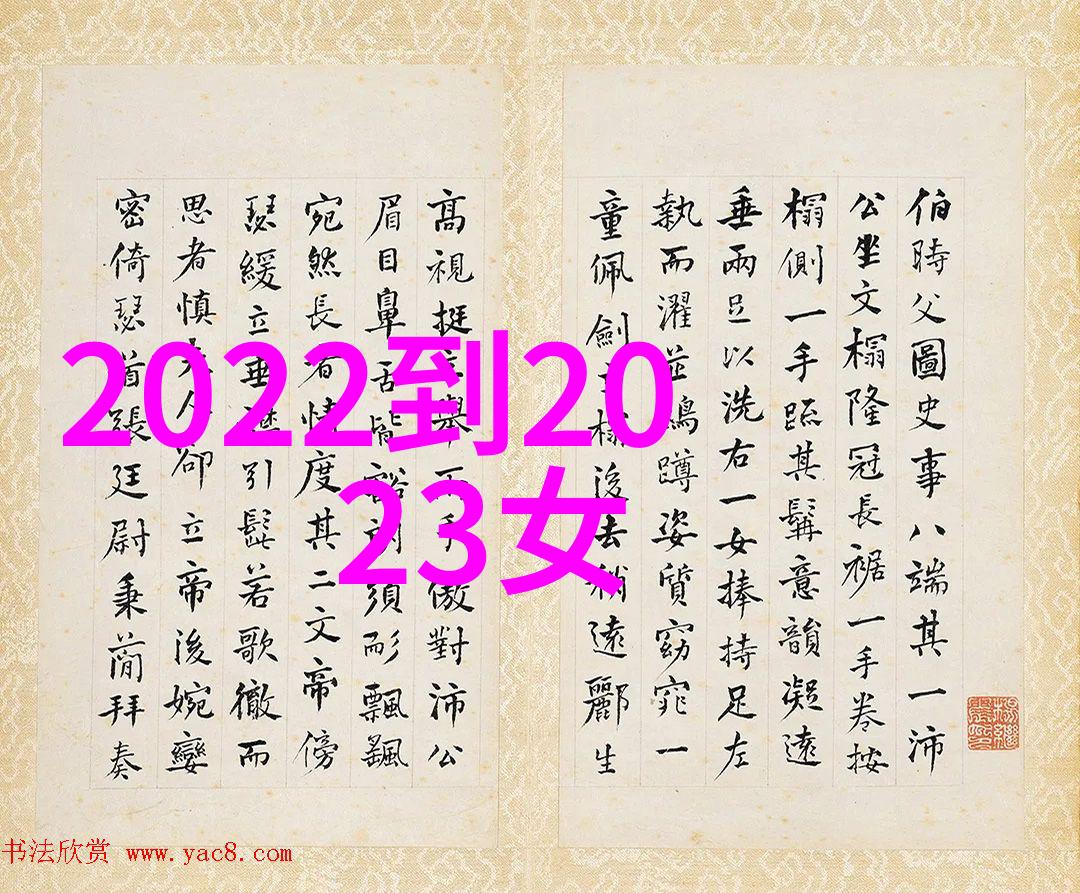 伯時父圖史事八端其一沛
公坐文榻隆冠長裾一手卷按
榻側一手踈其髯意韻凝遠
垂兩足以洗右一女捧持足左
執而濯並蹲姿質窈窕一
童佩劍立榻後去稍遠酈生
高視挺立舉手傲對沛公
眉目鼻舌皆豁朗須耏飄飄
宛然長者情度其二文帝傍
瑟緩立垂引髭若歌徹而
思者慎夫人卻立帝後婉孌
密倚瑟首張廷尉秉蕳拜奏
2022到20
23女
书法欣赏 www.yac8.com